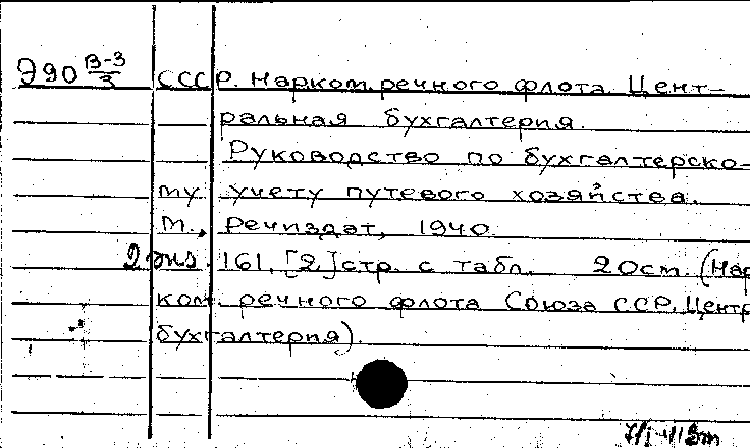 Э90 В-3/3 СССР. Нарком. речного флота. Цент-
ральная бухгалтерия.
Руководство по бухгалтерско-
му учету путевого хозяйства.
М., Речиздат, 1940.
2 экз. 161, [2] стр. с табл. 20 см. (Нар
ком. речного флота Союза ССР. Центр
бухгалтерия)